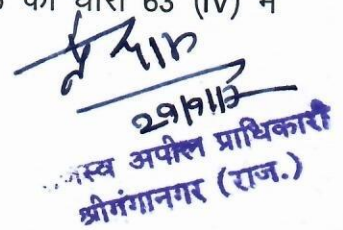 की धारा 63 (iv) में
29/9/17
राजस्व अपील प्राधिकारी
श्रीगंगानगर (राज.)